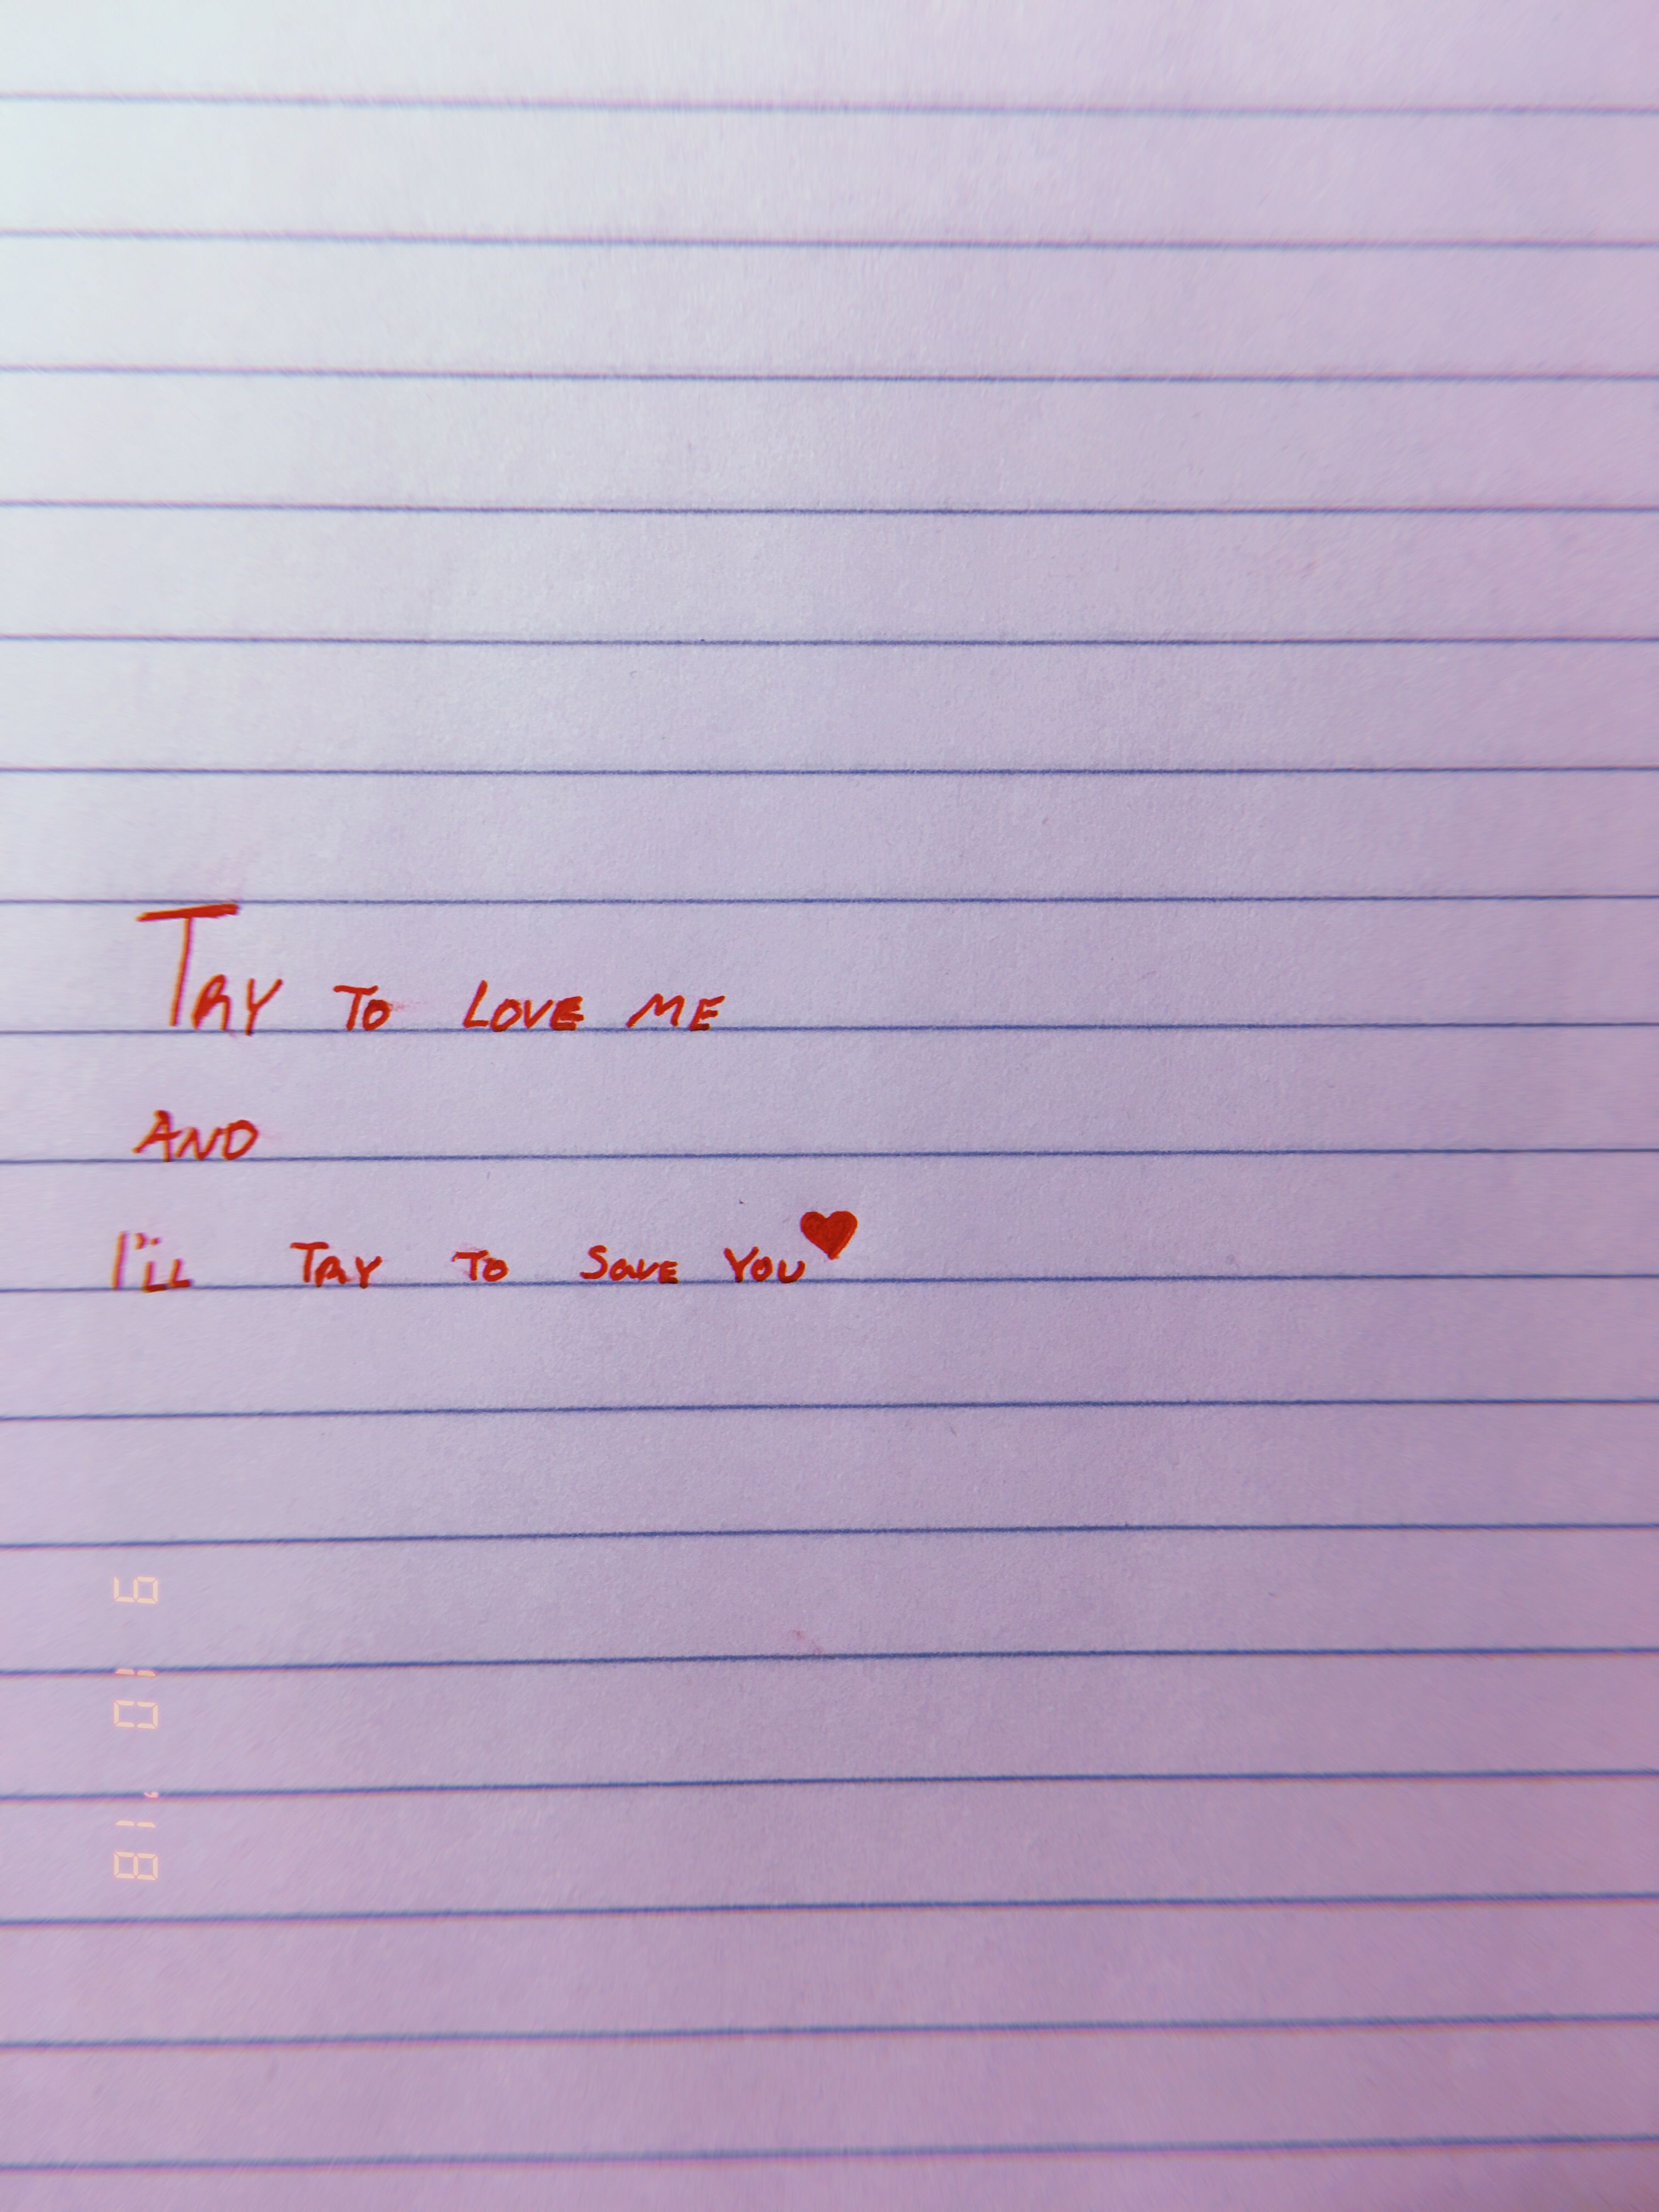 TRY TO LOVE ME
AND
I'LL TRY TO SavE YOU